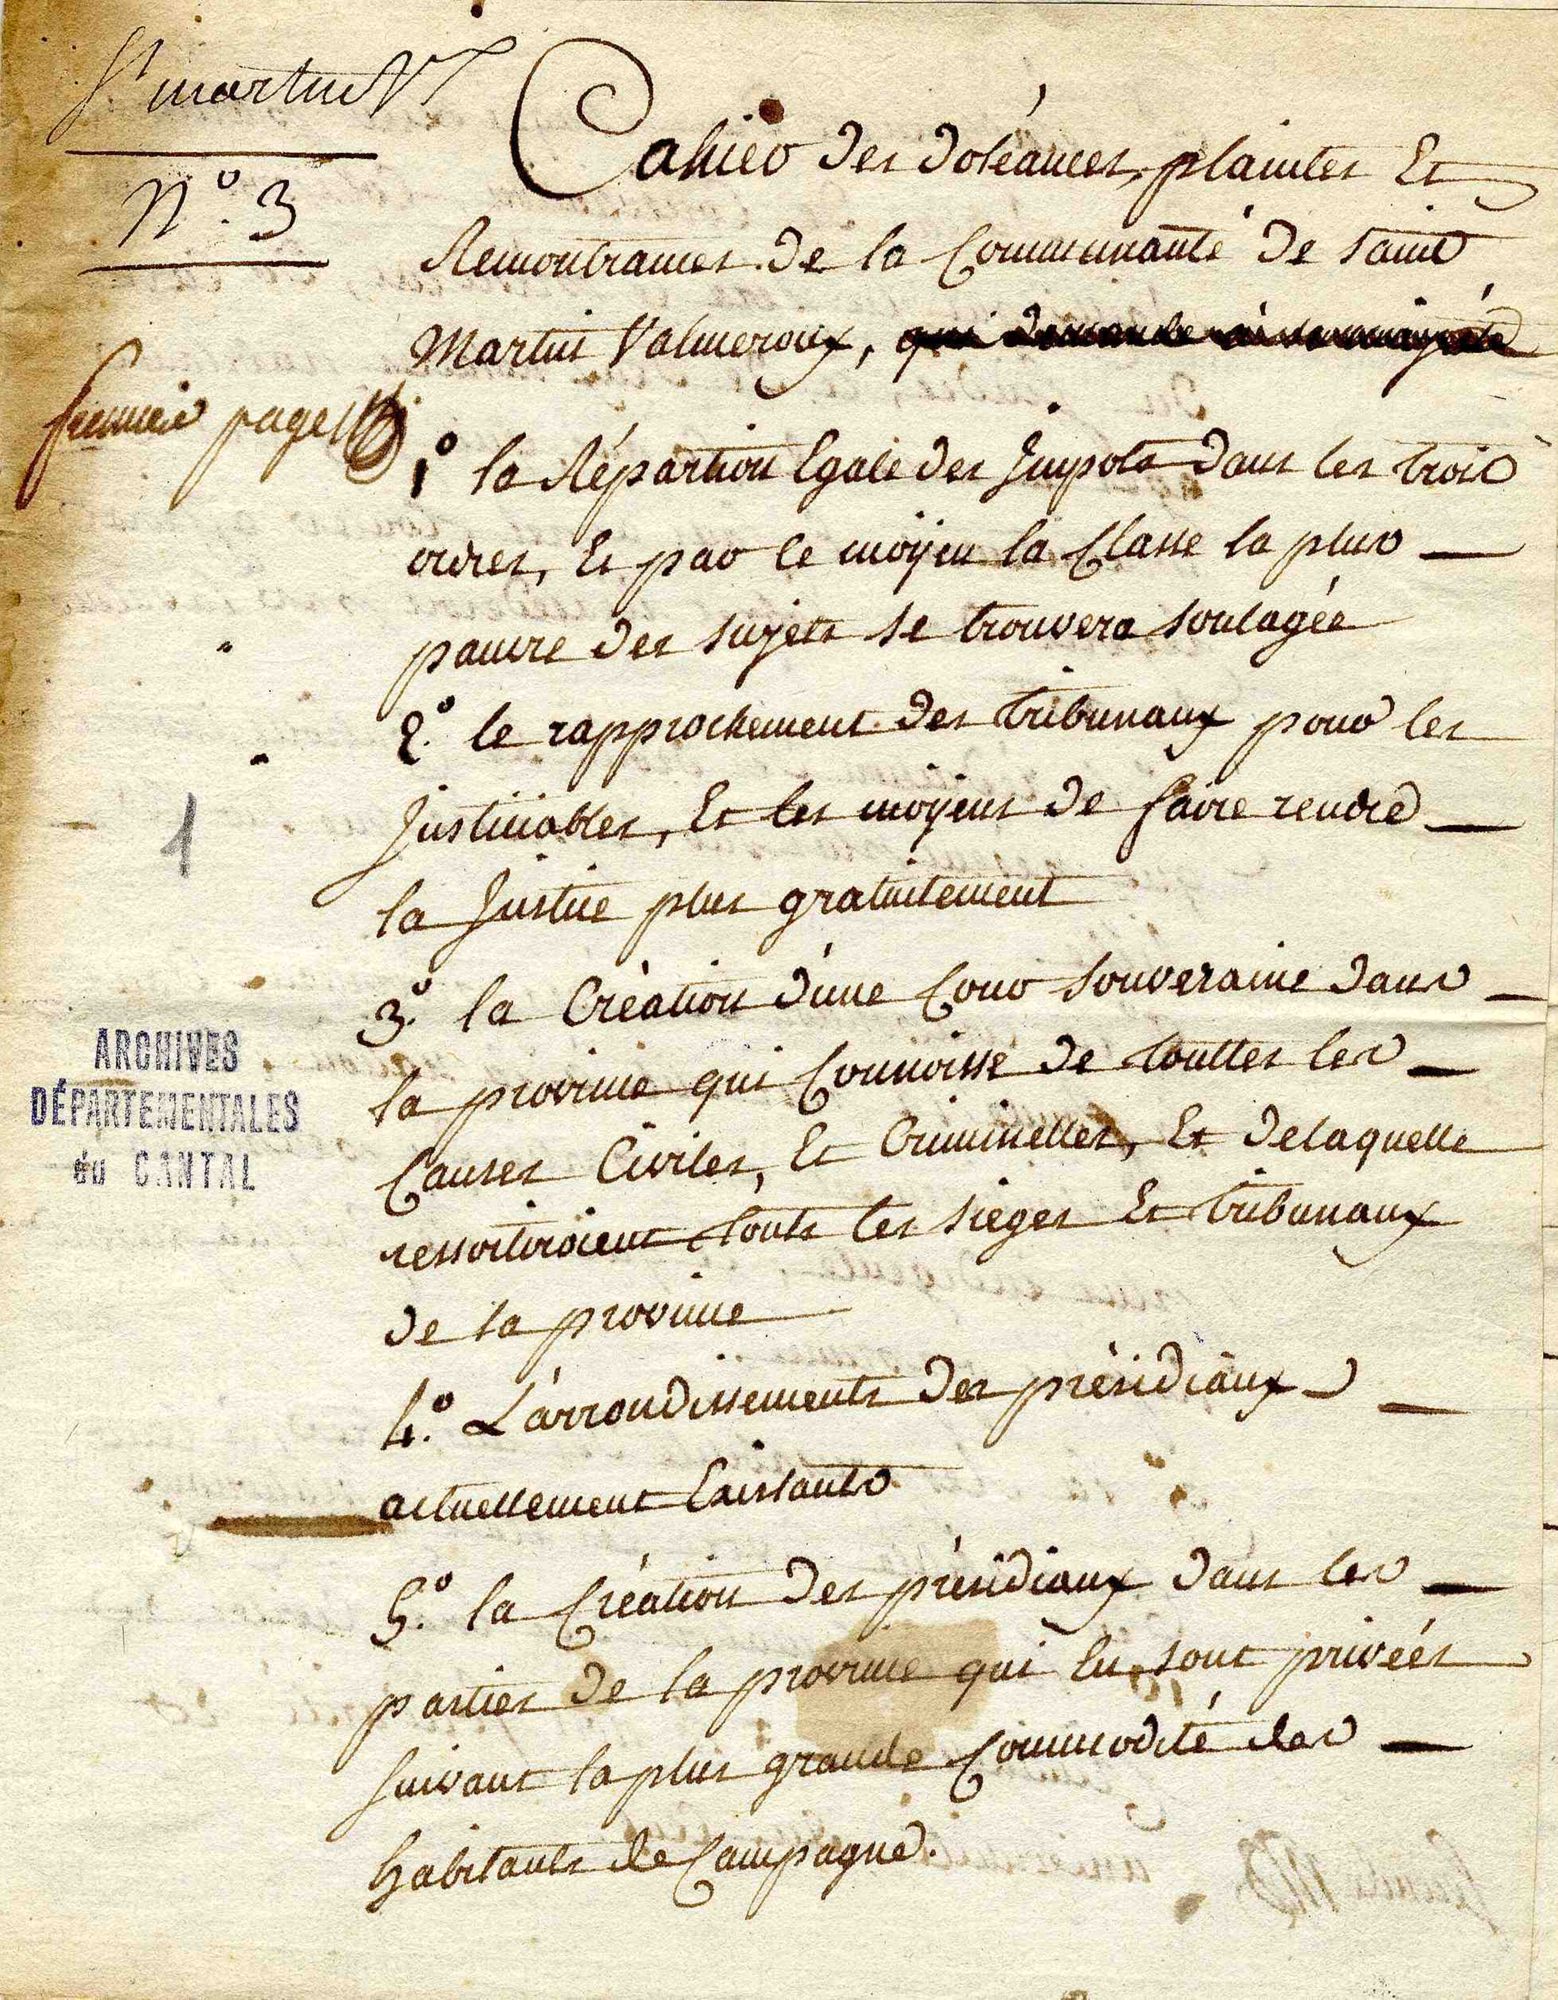 St martin V
N.° 3
Cahier des doléances, plaintes Et
Remontrances de la Communauté de saint
Martin Valmeroux, qui demande à sa majesté
premiere page
1° la Répartion Egale des Impots dans les trois
ordres, Et par ce moÿen la Classe la plus
pauvre des sujets se trouvera soulagée
2.° le rapprochement des tribunaux pour les
Justiciables, Et les moÿens de faire rendre
la Justice plus gratuitement
1
3.° la Création d'une Cour souveraine dans
la province qui Connoisse de touttes les
Causes Civiles, Et Criminelles, Et delaquelle
ressortiroient touts les sieges Et tribunaux
de la province
ARCHIVES
DÉPARTEMENTALES
du CANTAL
4.° L'arrondissements des présidiaux
actuellement Existants
5.° la Création des présidiaux dans les
parties de la province qui En sont privées
suivant la plus grande Commodité des
habitants de Campagne.